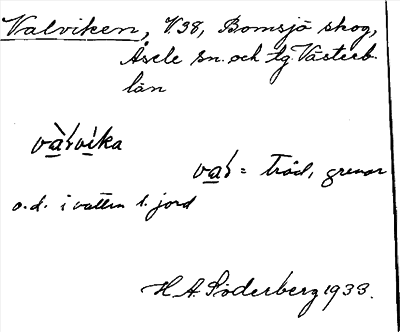 Valviken, V38, Bomsjö skog,
Åsele sn. och tg. Västerb.
län
va̲l = träd, grenar
o.d. i vatten l. jord
H.A. Söderberg 1933.